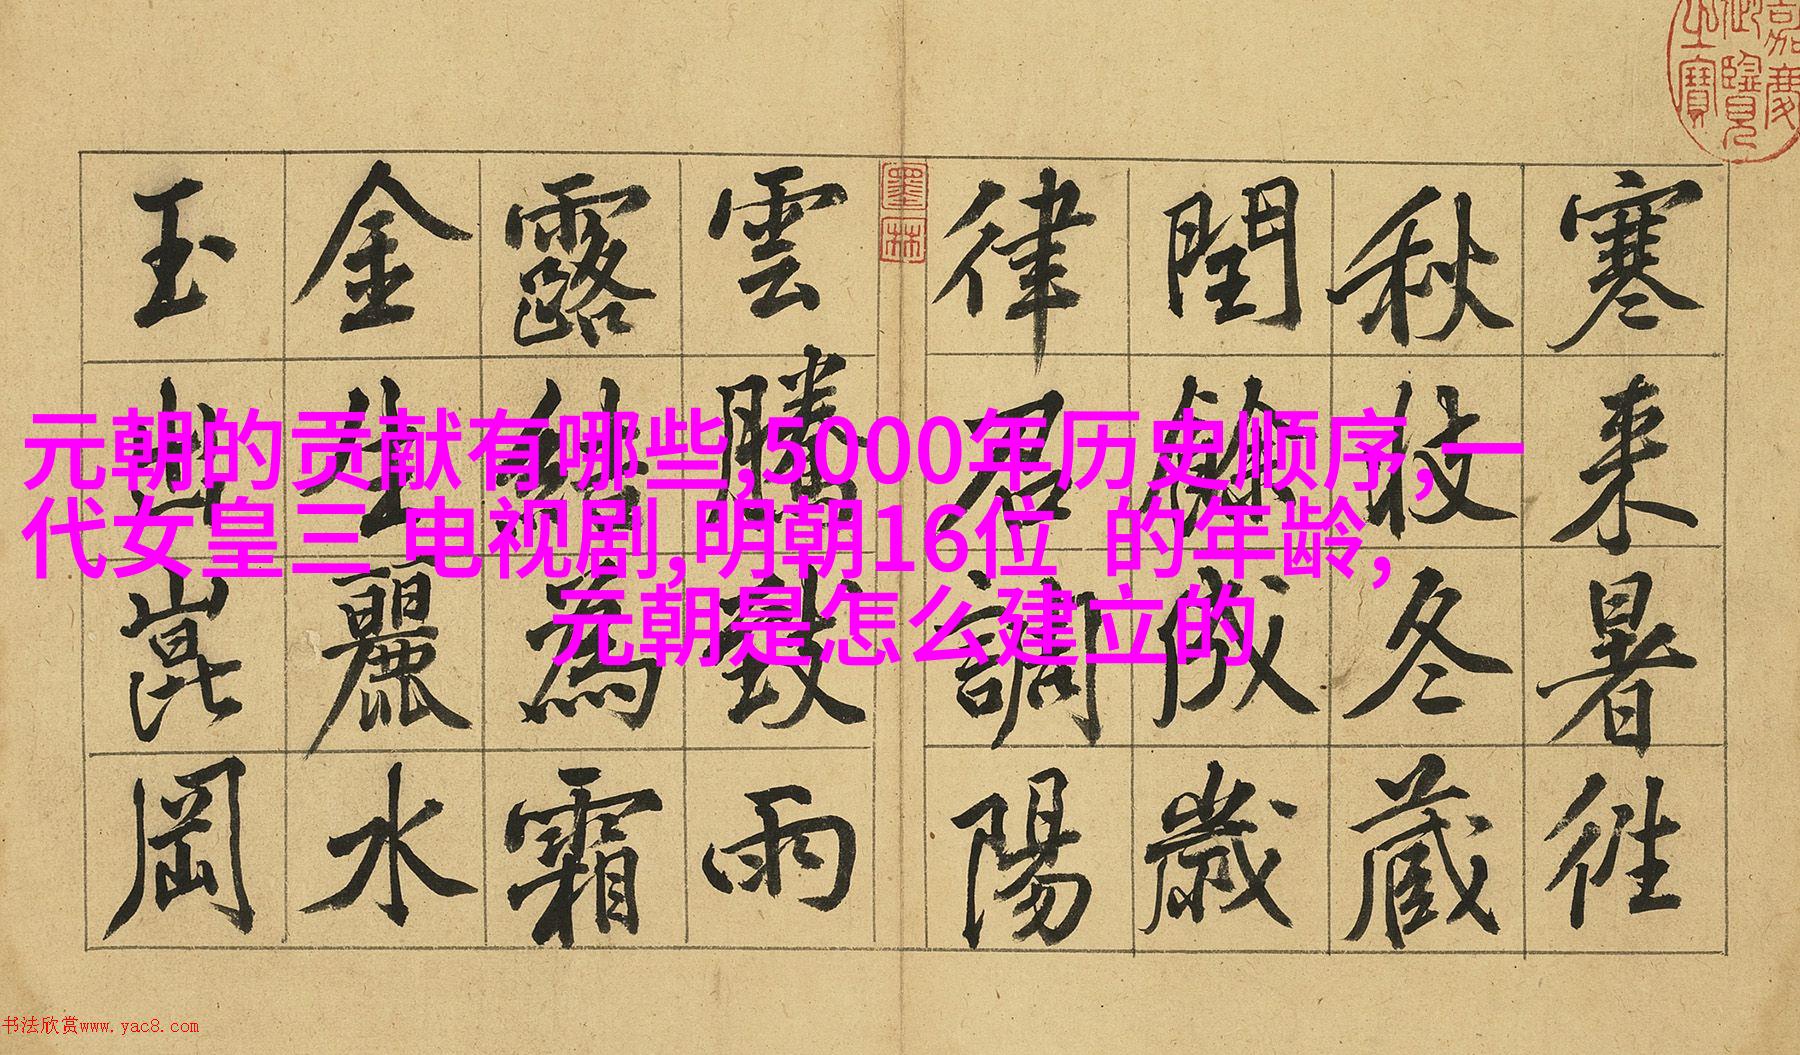 元朝的贡献有哪些,5000年历史顺序,一
代女皇三 电视剧,明朝16位 的年龄,
元朝是怎么建立的
寒来暑徃
秋收冬蔵
閏餘成歲
律召調陽
雲騰致雨
露結為霜
金生麗水
玉出崑岡
嘉慶
御覽
之寶
墨林
书法欣赏www.yac8.com